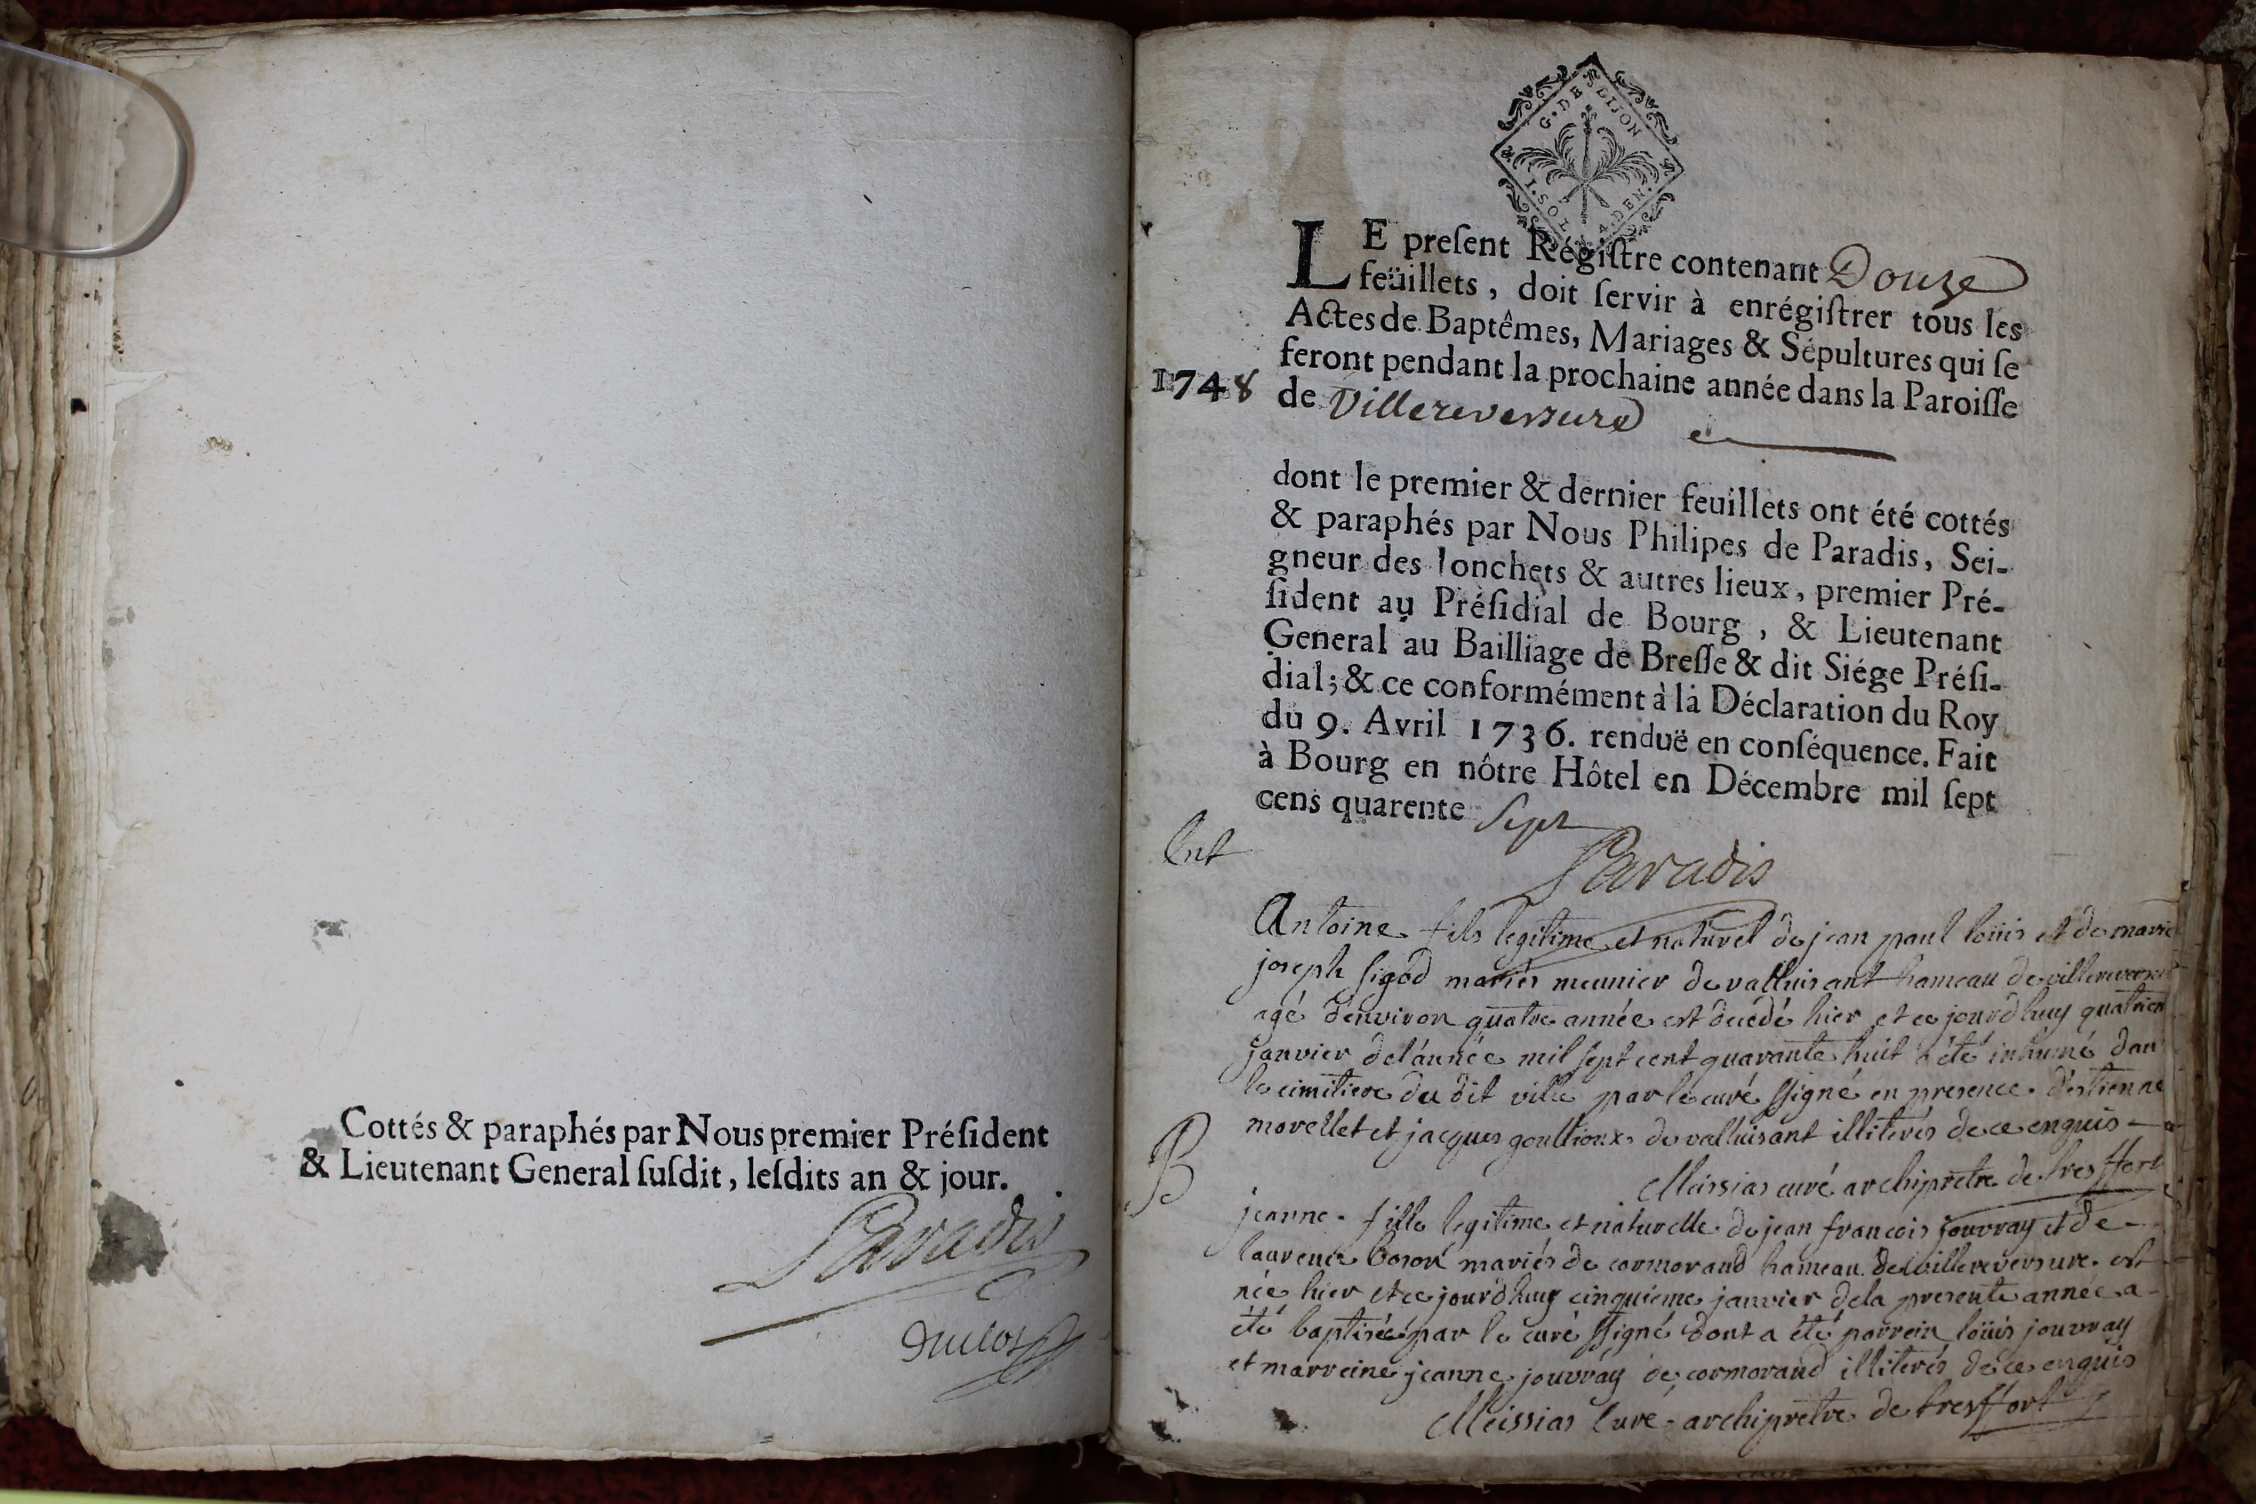 Cottés & paraphés par Nous premier Préſident
& Lieutenant General ſuſdit, leſdits an & jour.
Paradis
Duclos
G. DES DIJON
1. SOL 4 DEN.
LE preſent Régiſtre contenant Douze
feüillets, doit ſervir à enrégiſtrer tous les
Actes de Baptêmes, Mariages & Sépultures qui ſe
feront pendant la prochaine année dans la Paroiſſe
1748
de Villereversure
dont le premier & dernier feuillets ont été cottés
& paraphés par Nous Philipes de Paradis, Sei-
gneur des Ionchets & autres lieux, premier Pré-
ſident au Préſidial de Bourg, & Lieutenant
General au Bailliage de Breſſe & dit Siége Préſi-
dial; & ce conformément à la Déclaration du Roy
du 9. Avril 1736. renduë en conſéquence. Fait
à Bourg en nôtre Hôtel en Décembre mil ſept
cens quarente Sept
Paradis
Ent
Antoine fils legitime et naturel de jean paul loüis et de marie
joseph sigod mariés meunier de valluisant hameau de villereversure
agé d'environ quatre année est décédé hier et ce jourd'huy quatriem
janvier de l'année mil sept cent quarante huit a été inhumé dan
le cimitiere du dit ville par le curé ssigné en presence d'estienne
morellet et jacques goultioux de valluisant illiterés de ce enquis
Meissias curé archiprêtre de tresffort
B
jeanne fille legitime et naturelle de jean francois jouvray et de
laurence boson mariés de cormorand hameau de villereversure est
née hier et ce jourd'huy cinquieme janvier de la presente année a
été baptisée par le curé ssigné dont a été parrein loüis jouvray
et marreine jeanne jouvray de cormorand illiterés de ce enquis
Meissias Curé archiprêtre de tresffort